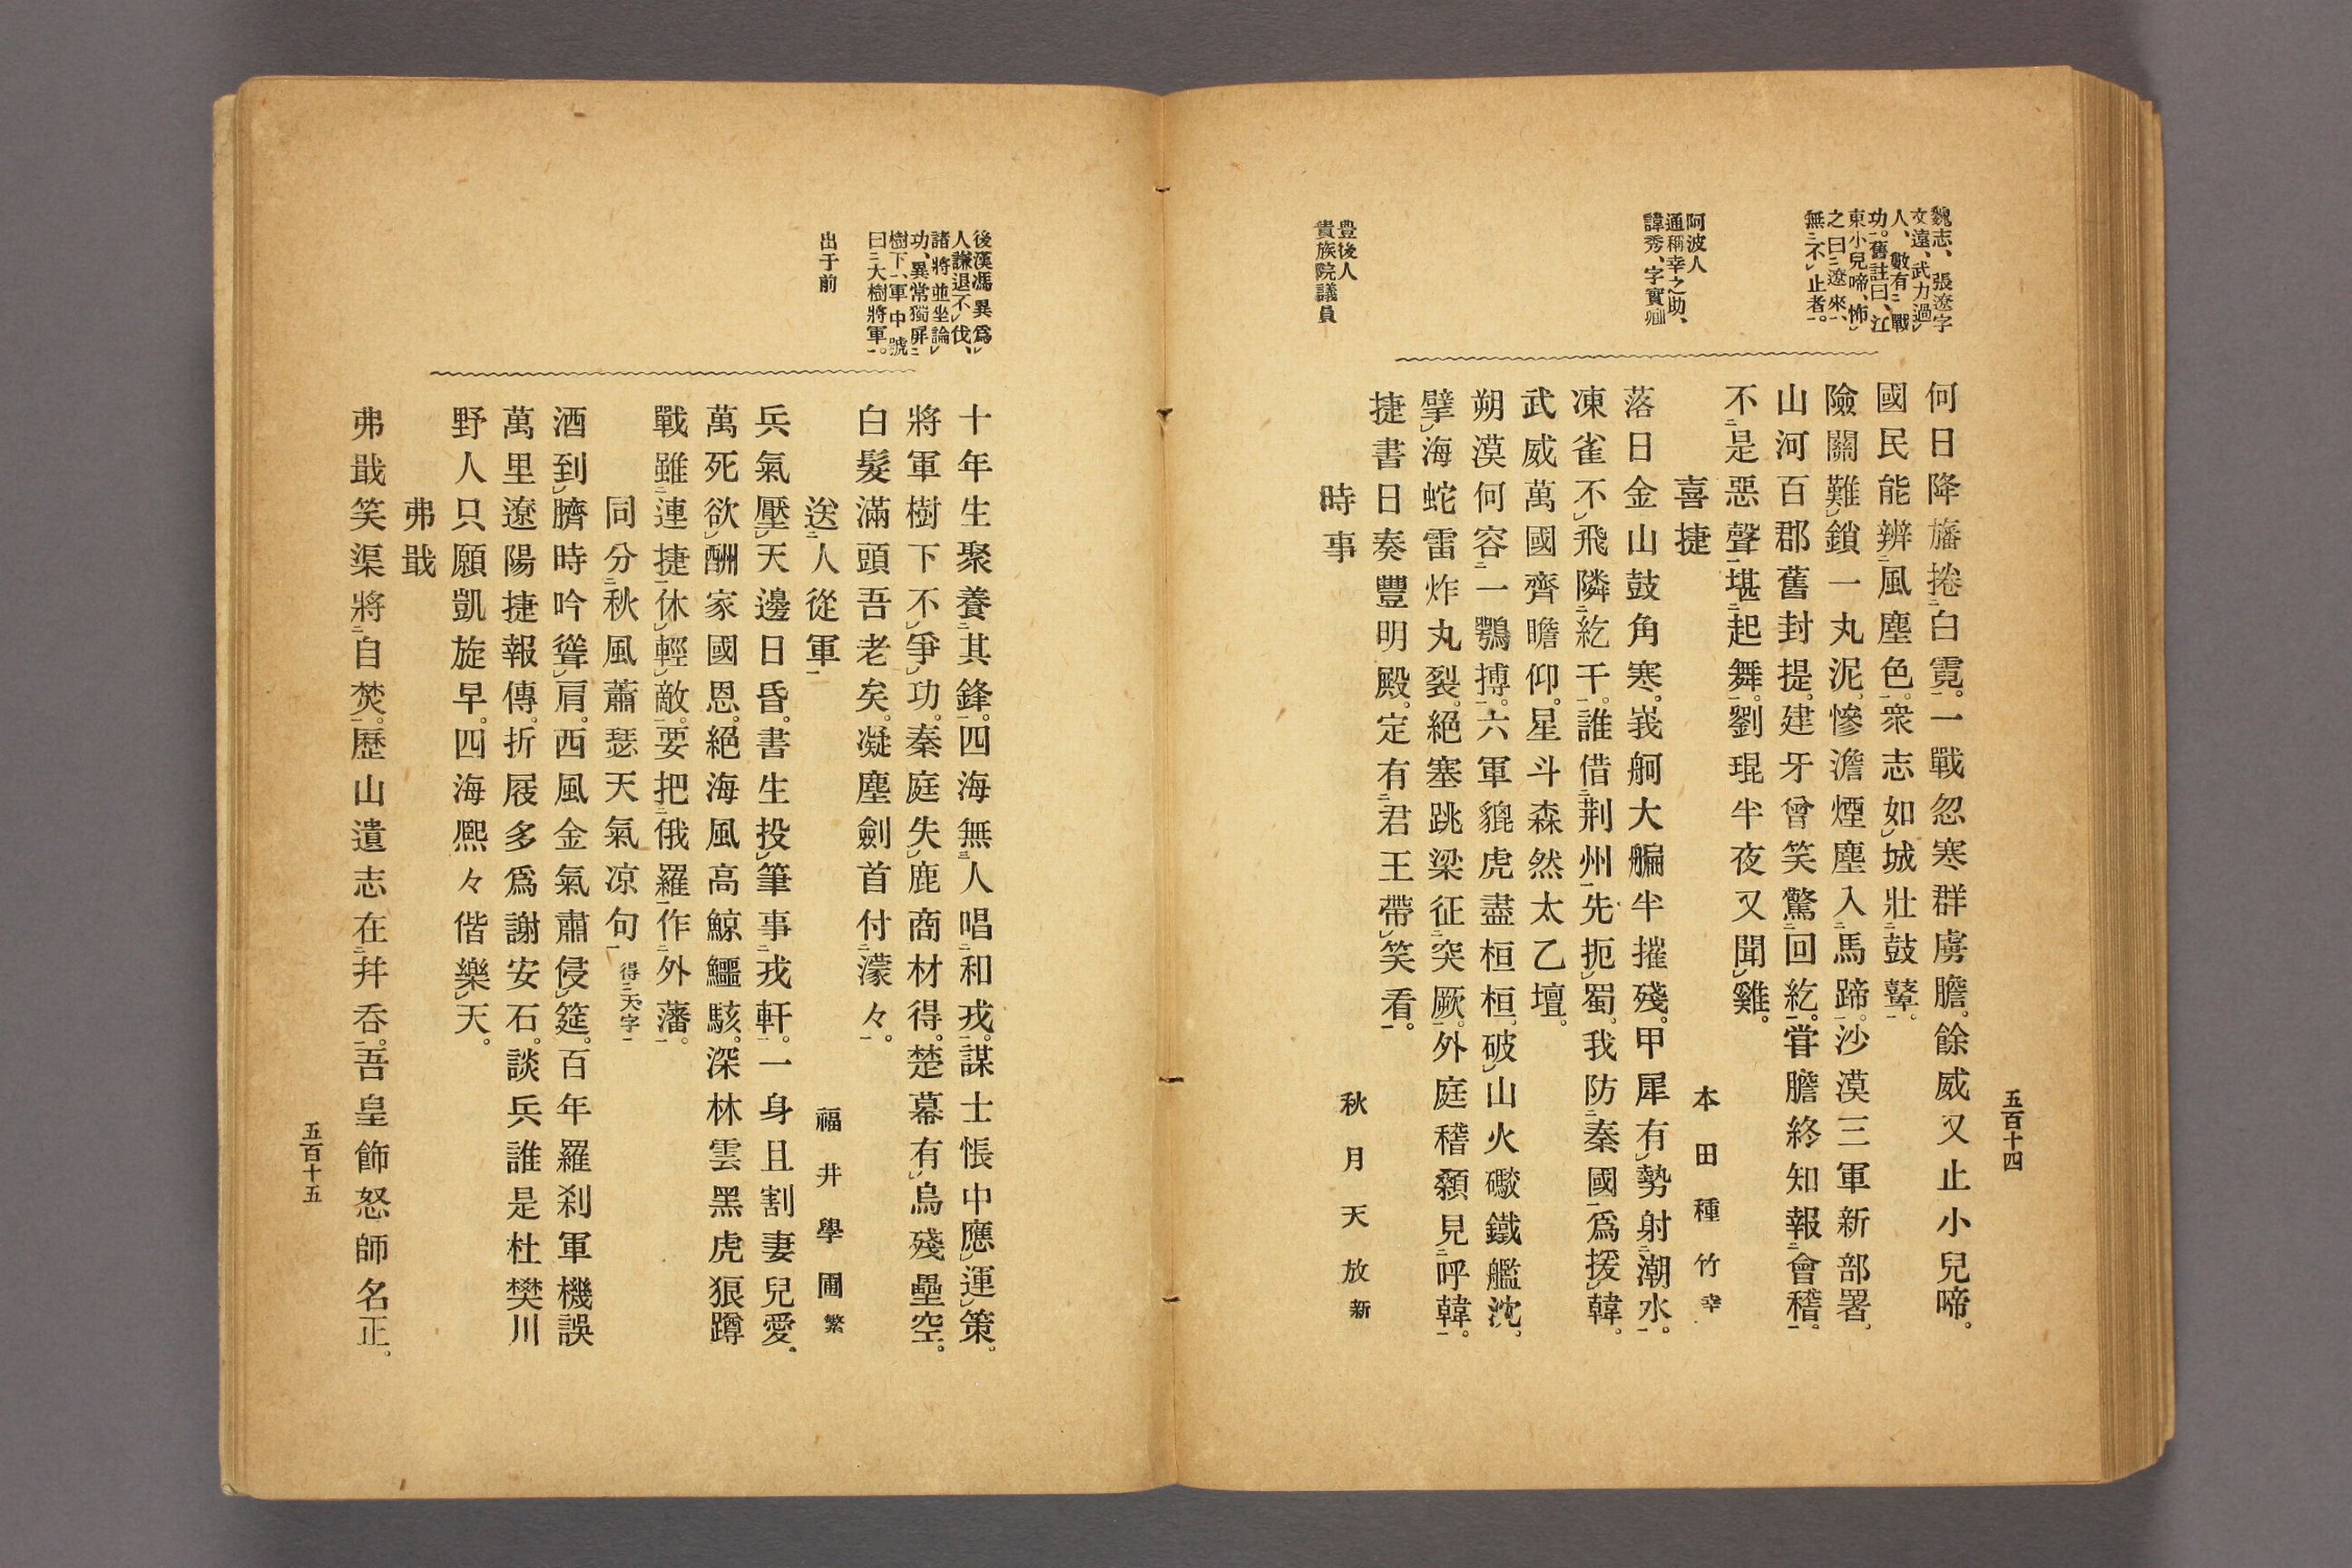 五百十四
魏志、張遼字
文遠、武力過
人、數有戰
功。舊註曰、江
東小兒啼、怖
之曰遼來、
無不止者。
何日降旛捲白霓。一戰忽寒群虜膽。餘威又止小兒啼。
國民能辨風塵色。衆志如城壯鼓鼙。
險關難鎖一丸泥。慘澹煙塵入馬蹄。沙漠三軍新部署。
山河百郡舊封提。建牙曾笑驚回紇。甞膽終知報會稽。
不是惡聲堪起舞。劉琨半夜又聞雞。
阿波人
通稱幸之助、
諱秀、字實卿
喜捷 本田種竹幸
落日金山鼓角寒。峩舸大艑半摧殘。甲犀有勢射潮水。
凍雀不飛隣紇干。誰借荆州先扼蜀。我防秦國爲援韓。
武威萬國齊瞻仰。星斗森然太乙壇。
朔漠何容一鶚搏。六軍貔虎盡桓桓。破山火礮鐵艦沈。
擘海蛇雷炸丸裂。絕塞跳梁征突厥。外庭稽顙見呼韓。
捷書日奏豐明殿。定有君王帶笑看。
豊後人
貴族院議員
時事 秋月天放新
後漢馮異爲
人謙退不伐、
諸將並坐論
功、異常獨屏
樹下、軍中號
曰大樹將軍。
十年生聚養其鋒。四海無人唱和戎。謀士悵中應運策。
將軍樹下不爭功。秦庭失鹿商材得。楚幕有烏殘壘空。
白髮滿頭吾老矣。凝塵劍首付濛々。
出于前
送人從軍 福井學圃繁
兵氣壓天邊日昏。書生投筆事戎軒。一身且割妻兒愛。
萬死欲酬家國恩。絕海風高鯨鱷駭。深林雲黑虎狼蹲
戰雖連捷休輕敵。要把俄羅作外藩。
同分秋風蕭瑟天氣凉句 得天字
酒到臍時吟聳肩。西風金氣肅侵筵。百年羅刹軍機誤
萬里遼陽捷報傳。折屐多爲謝安石。談兵誰是杜樊川
野人只願凱旋早。四海熈々偕樂天。
弗戢
弗戢笑渠將自焚。歷山遺志在幷呑。吾皇飾怒師名正。
五百十五